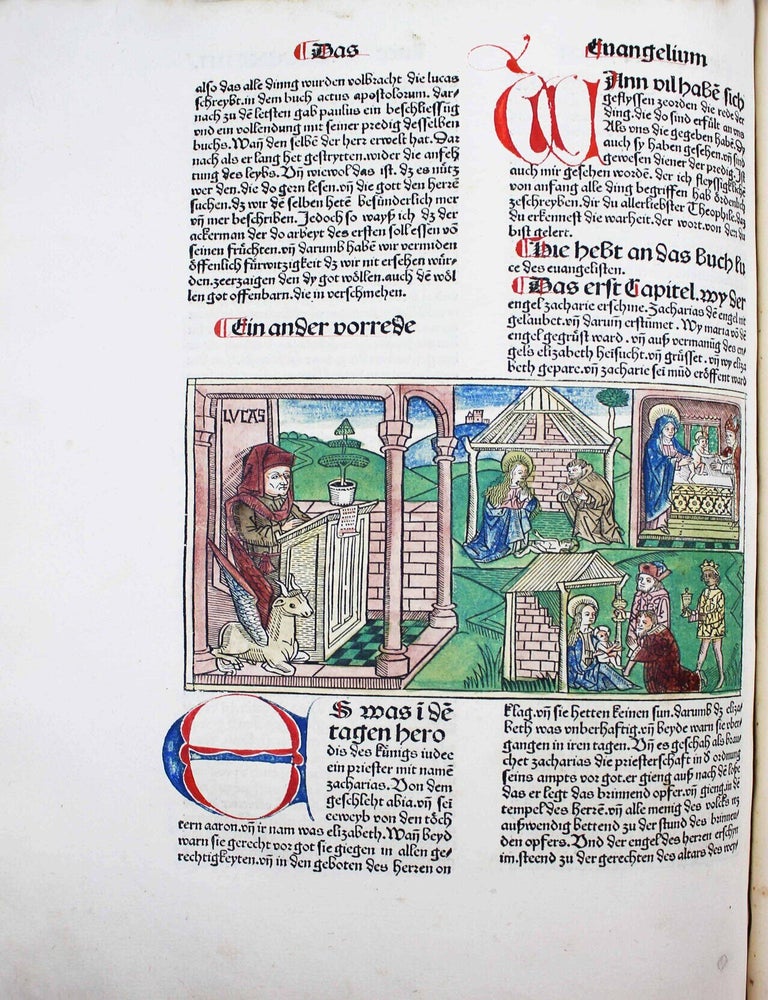 Das
Euangelium
also das alle dinng wurden volbracht die lucas
schreybt.in dem buch actus apostolorum. dar-
nach zu dē letsten gab paulus ein beschliessūg
vnd ein vollendung mit seiner predig desselben
buchs. Wañ den selbē der herr erwelt hat. Dar
nach als er lang het gestrytten.wider die anfech
tung des leybs. Vñ wiewol das ist. dz es nütz
wer den.die do gern lesen.vñ die gott den herrē
suchen.dz wir dē selben hetē besünderlich mer
vñ mer beschriben. Jedoch so wayß ich dz der
ackerman der do arbeyt des ersten sol essen vō
seinen früchten.vñ darumb habē wir vermiden
öffenlich fürwitzigkeit dz wir nit ersehen würt-
den.zeerzaigen den dy got wöllen.auch dē wöl
len got offenbarn.die in verschmehen.
Ein ander vorrede
WAnn vil habē sich
geflyssen zeorden die rede der
ding.die do sind erfült an vns
Als vns die gegeben habē.dy
auch sy haben gesehen.vñ sind
gewesen diener der predig.Ist
auch mir gesehen wordē. der ich fleyssigkliche
von anfang alle ding begriffen hab ordenlich
zeschreyben.dir du allerliebster Theophile.daz
du erkennest die warheit.der wort.von den du
bist gelert.
Die hebt an das Buch lu
ce des euangelisten.
Das erst Capitel.wy der
engel zacharie erschine.Zacharias dē engel nit
gelaubet.vñ darum̄ erstūmet. Wy maria vō dē
engel gegrüst ward. vñ auß vermanūg des en-
gels elizabeth heīsucht.vñ grüsset. vñ wy eliza
beth gepare.vñ zacharie sei mūd eröffent ward
LVCAS
ES was ī dē
tagen hero
dis des künigs iudee
ein priester mit namē
zacharias. Von dem
geschlecht abia.vñ sei
eeweyb von den töch
tern aaron.vñ ir nam was elizabeth. Wañ beyd
warn sie gerecht vor got sie giegen in allen ge/
rechtigkeyten.vñ in den geboten des herren on
klag.vñ sie hetten keinen sun.darumb dz eliza-
beth was vnberhaftig.vñ beyde warn sie vber-
gangen in iren tagen. Vñ es geschah als brau-
chet zacharias die priesterschaft in d ordnung
seins ampts vor got.er gieng auß nach dē loße
das er legt das brinnend opfer.vñ gieng.in dē
tempel des herrē.vñ alle menig des volcks wz
außwendig bettend zu der stund des brinnen-
den opfers. Vnd der engel des herren erschyn
im.steend zu der gerechten des altars des wey-